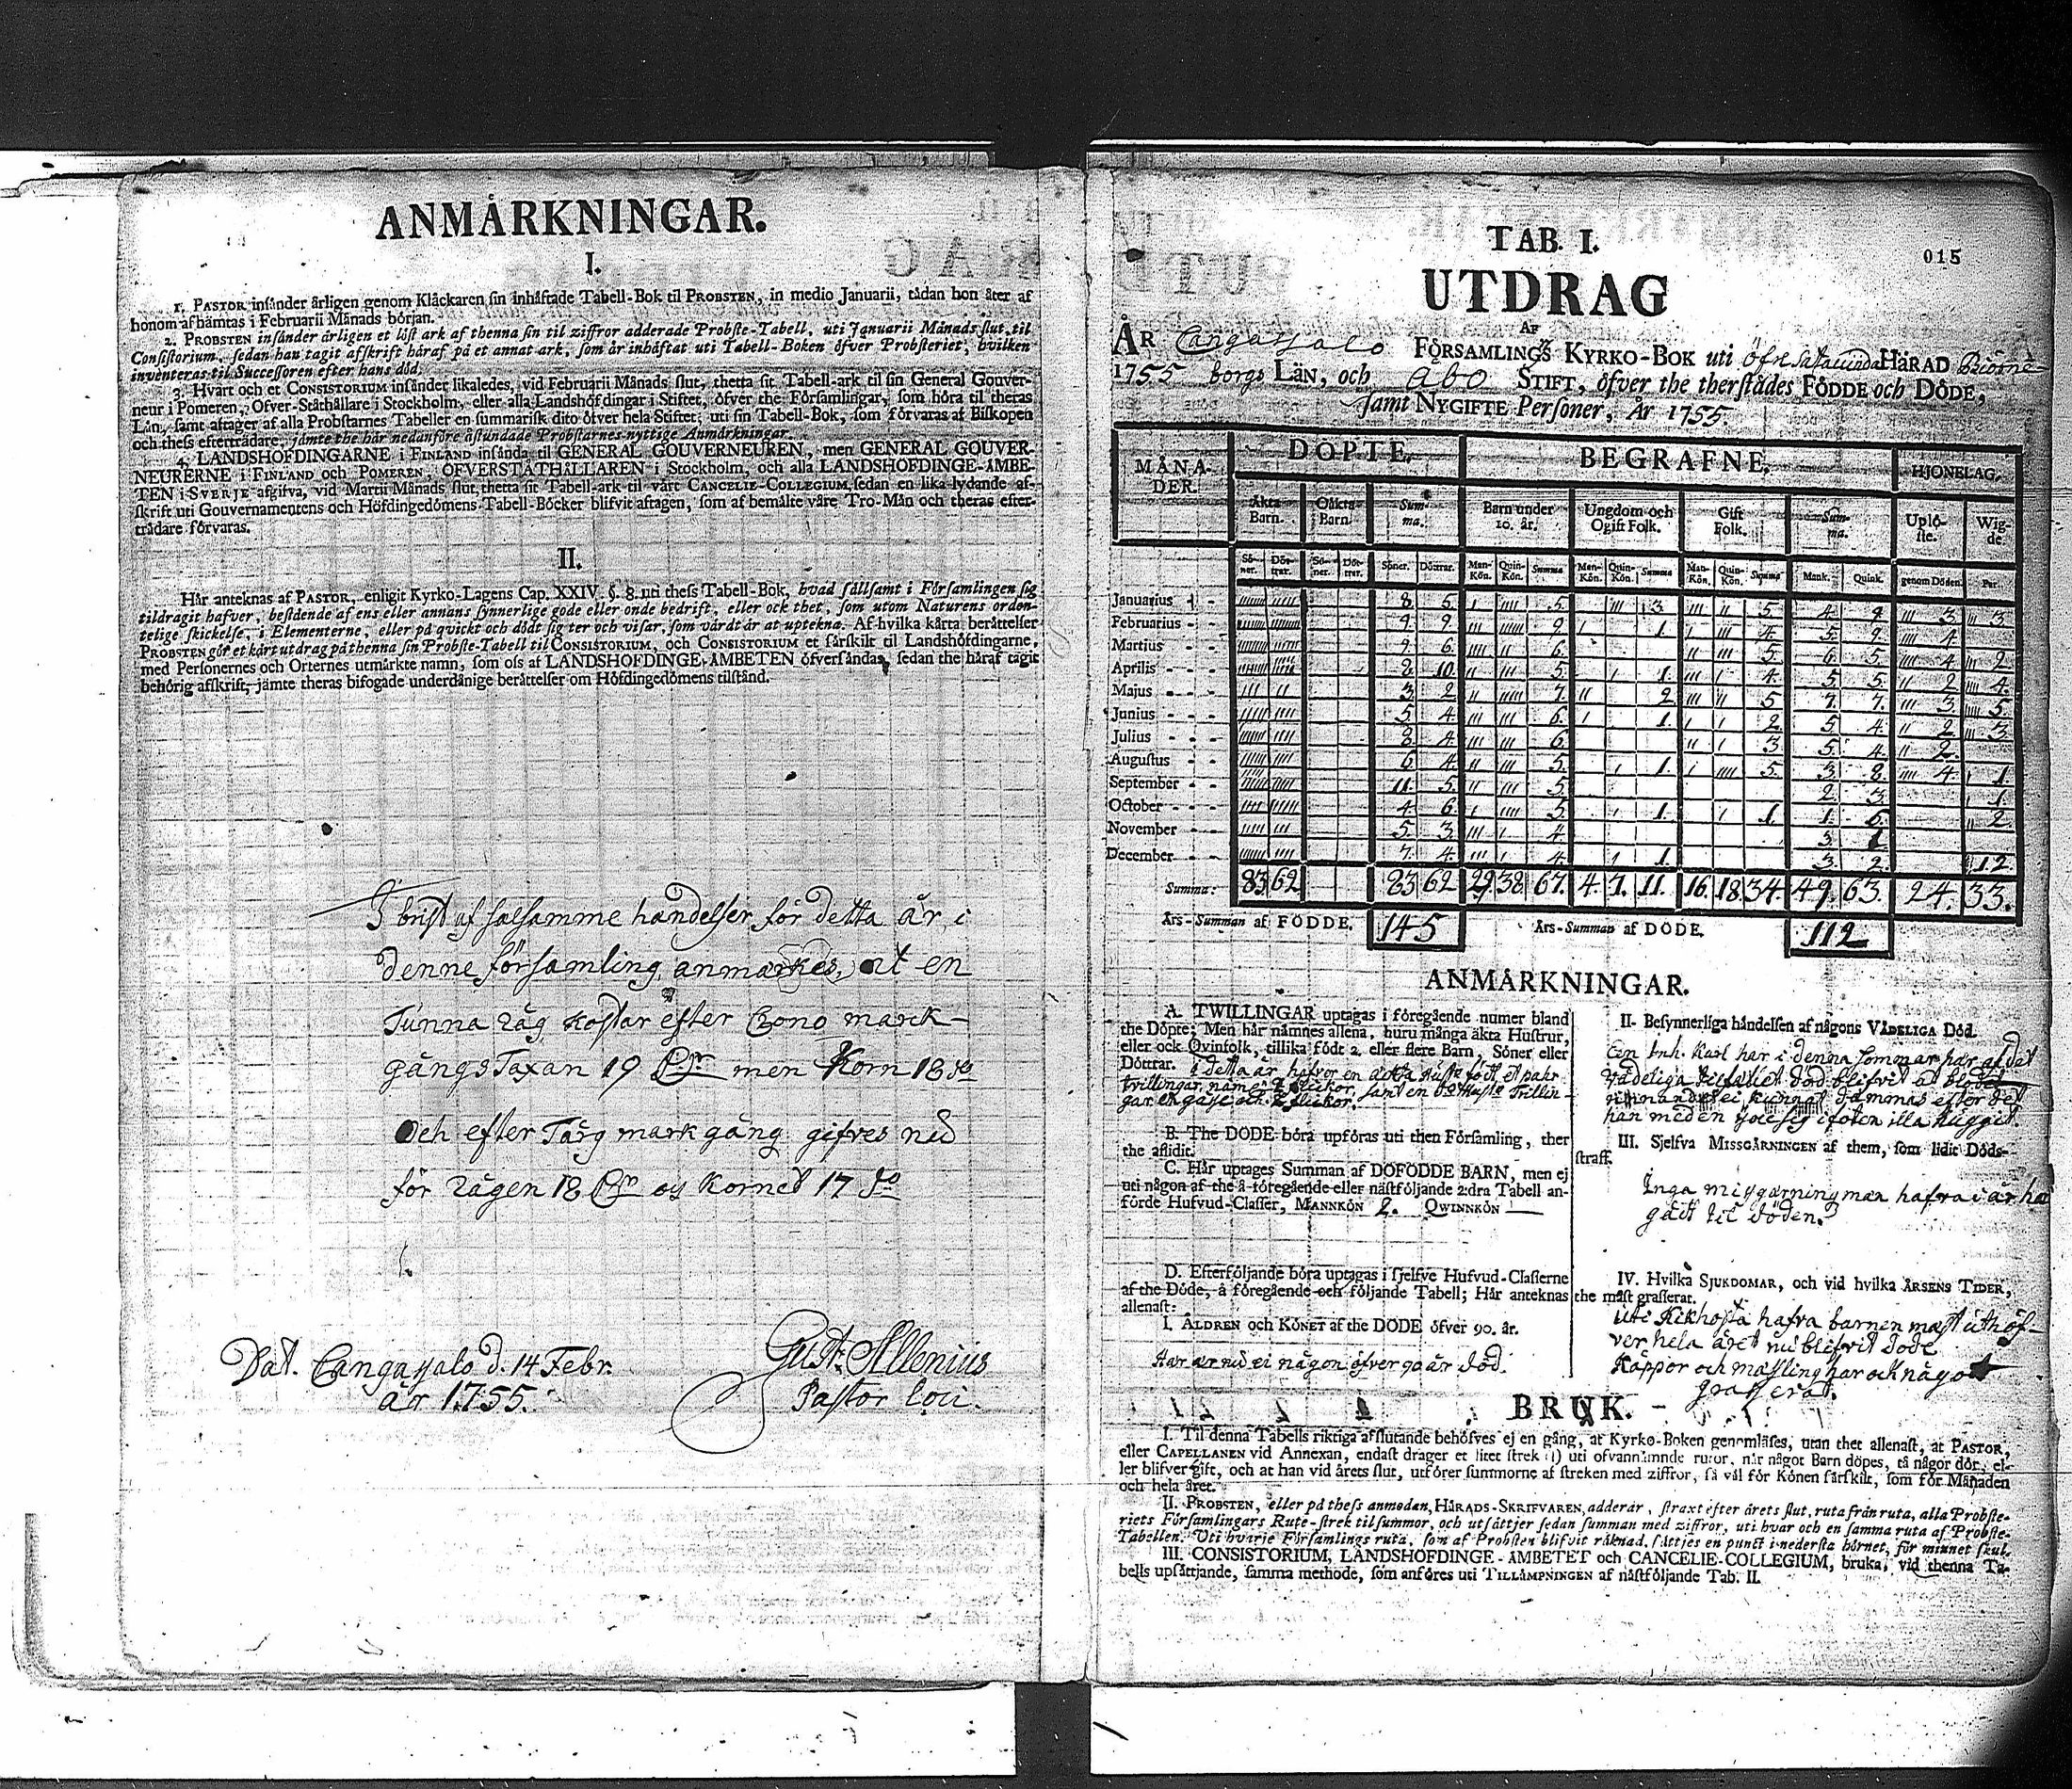 ANMÅRKNINGAR.
I.
1. PASTOR insånder årligen genom Klåckaren sin inhåftade Tabell-Bok til PROBSTEN, in medio Januarii, tådan hon åter af
honom afhåmtas i Februarii Månads början.
2. PROBSTEN insånder årligen et löst ark af thenna sin til ziffror adderade Probste-Tabell, uti Januarii Månads slut, til
Consistorium, sedan han tagit afskrift håraf på et annat ark, som år inhåftat uti Tabell-Boken öfver Probsteriet, hvilken
inventeras til Successoren efter hans död.
3. Hvart och et CONSISTORIUM insånder likaledes, vid Februarii Månads slut, thetta sit Tabell-ark til sin General Gouver-
neur i Pomeren, Öfver-Ståthållare i Stockholm, eller alla Landshöfdingar i Stiftet, öfver the Församlingar, som höra til theras
Lån, samt aftager af alla Probstarnes Tabeller en summarisk dito öfver hela Stiftet, uti sin Tabell-Bok, som förvaras af Biskopen
och thess efterträdare, jåmte the hår nedanföre åstundade Probstarnes nyttige Anmårkningar.
4. LANDSHÖFDINGARNE i FINLAND insånda til GENERAL GOUVERNEUREN, men GENERAL GOUVER-
NEURERNE i FINLAND och POMEREN, ÖFVERSTÅTHÅLLAREN i Stockholm, och alla LANDSHÖFDINGE-ÅMBE-
TEN i SVERJE afgifva, vid Martii Månads slut, thetta sit Tabell-ark til vårt CANCELIE-COLLEGIUM, sedan en lika lydande af-
skrift uti Gouvernamentens och Höfdingedömens Tabell-Böcker blifvit aftagen, som af bemålte våre Tro-Mån och theras efter-
trådare förvaras.
II.
Hår anteknas af PASTOR, enligit Kyrko-Lagens Cap. XXIV. §. 8. uti thess Tabell-Bok, hvad sållsamt i Församlingen sig
tildragit hafver, bestående af ens eller annans synnerlige gode eller onde bedrift, eller ock thet, som utom Naturens orden-
telige skickelse, i Elementerne, eller på qvickt och dödt sig ter och visar, som vårdt år at uptekna. Af hvilka kårta beråttelser
PROBSTEN gör et kårt utdrag på thenna sin Probste-Tabell til CONSISTORIUM, och CONSISTORIUM et sårskilt til Landshöfdingarne,
med Personernes och Orternes utmårkte namn, som oss af LANDSHÖFDINGE-ÅMBETEN öfversåndas, sedan the håraf tagit
behörig afskrift, jåmte theras bifogade underdånige beråttelser om Höfdingedömens tilstånd.
I brist af sälsamme händelser för detta år i
denne församling anmärkes, at en
Tunna Råg kostar efter Crono marck-
gångs Taxan 19 men Korn 18 do
Och efter Torg markgång gifves nu
för Rågen 18 och Kornet 17 do
Dat. Cangasalo d. 14 Febr.
år 1755.
Gust: Allenius
Pastor Loci.
015
TAB. I.
UTDRAG
AF
ÅR Cangasalo FÖRSAMLINGS KYRKO-BOK uti Öfre Satacunda HÅRAD Biörne-
1755 borgs LÅN, och Åbo STIFT, öfver the therstådes FÖDDE och DÖDE,
samt NYGIFTE Personer, År 1755.
MÅNA-DER. DÖPTE. BEGRAFNE. HJONELAG.
Åkta Barn. Oåkta Barn. Summa. Barn under 10. år. Ungdom och Ogift Folk. Gift Folk. Summa. Uplö-ste. Wig-de.
Sö-ner. Döt-trar. Sö-ner. Döt-trar. Söner. Döttrar. Man-Kön. Quin-Kön. Summa Man-Kön. Quin-Kön. Summa Man-Kön. Quin-Kön. Summa Mank. Quink. genom Döden. Par.
Januarius 8. 5. 5. 3. 5. 4. 9. 3. 3.
Februarius 9. 9. 9. 1. 4. 5. 9. 4.
Martius 9. 6. 6. 5. 6. 5. 4. 2.
Aprilis 8. 10. 5. 1. 4. 5. 5. 2. 4.
Majus 3. 2. 7. 2. 5. 7. 7. 3. 5.
Junius 5. 4. 6. 1. 2. 5. 4. 2. 3.
Julius 8. 4. 6. 3. 5. 4. 2.
Augustus 6. 4. 5. 1. 5. 3. 8. 4. 1.
September 11. 5. 5. 2. 3. 1.
October 4. 6. 5. 1. 1. 1. 6. 2.
November 5. 3. 4. 3. 1.
December 7. 4. 4. 1. 3. 2. 12.
Summa: 83 62 83 62 29. 38. 67. 4. 7. 11. 16. 18. 34. 49. 63. 24. 33.
Års-Summan af FÖDDE. 145 Års-Summan af DÖDE. 112
ANMÅRKNINGAR.
A. TWILLINGAR uptagas i föregående numer bland
the Döpte; Men hår nåmnes allena, huru många åkta Hustrur,
eller ock Qvinfolk, tillika födt 2. eller flere Barn, Söner eller
Döttrar. I detta år hafver en ächta Hustr födt et pahr
tvillingar, näml: 2 flickor, samt en do Hustr Trillin-
gar, en gåsse och 2 flickor.
B. The DÖDE böra upföras uti then Församling, ther
the aflidit.
C. Hår uptages Summan af DÖFÖDDE BARN, men ej
uti någon af the å föregående eller nåstföljande 2:dra Tabell an-
förde Hufvud-Classer, MANNKÖN 2. QWINNKÖN —
D. Efterföljande böra uptagas i sjelfve Hufvud-Classerne
af the Döde, å föregående och följande Tabell; Hår anteknas
allenast:
I. ÅLDREN och KÖNET af the DÖDE öfver 90. år.
Här är nu ei någon öfver 90 år död.
II. Besynnerliga håndelsen af någons VÅDELIGA Död.
En Inh. Karl har i denna sommar här af det
vådeliga tilfället död blifvit at bloden
rinnandes ei kunnat dämmas efter det
han med en yxe sig i foten illa huggit.
III. Sjelfva MISSGÅRNINGEN af them, som lidit Döds-
straff.
Inga missgärningmän hafva i år här
gått til döden.
IV. Hvilka SJUKDOMAR, och vid hvilka ÅRSENS TIDER,
the måst grasserat.
Uti Kikhosta hafva barnen mäst uthöf-
ver hela året nu blifvit döde
Kåppor och mässling har och något
grasserat.
BRUK.
I. Til denna Tabells riktiga afslutande behöfves ej en gång, at Kyrko-Boken genomlåses, utan thet allenast, at PASTOR,
eller CAPELLANEN vid Annexan, endast drager et litet strek (1) uti ofvannåmnde rutor, når något Barn döpes, tå någor dör, el-
ler blifver gift, och at han vid årets slut, utförer summorne af streken med ziffror, så vål för Könen sårskilt, som för Månaden
och hela året.
II. PROBSTEN, eller på thess anmodan, HÅRADS-SKRIFVAREN, adderar, straxt efter årets slut, ruta från ruta, alla Probste-
riets Församlingars Rute-strek til summor, och utsåttjer sedan summan med ziffror, uti hvar och en samma ruta af Probste-
Tabellen. Uti hvarje Församlings ruta, som af Probsten blifvit råknad, såttjes en punct i nedersta hörnet, för minnet skul.
III. CONSISTORIUM, LANDSHÖFDINGE-ÅMBETET och CANCELIE-COLLEGIUM, bruka, vid thenna Ta-
bells upsåttjande, samma methode, som anföres uti TILLÅMPNINGEN af nåstföljande Tab. II.